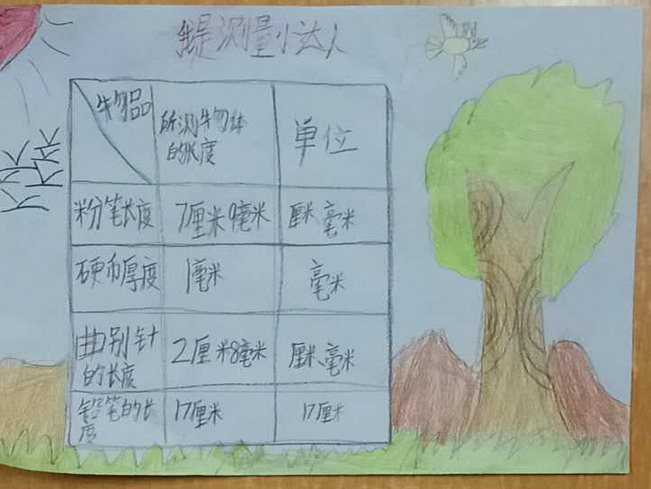 我是测量小达人
物品
所测物体
的长度
单位
粉笔长度
7厘米9毫米
厘米、毫米
硬币厚度
1毫米
毫米
曲别针
的长度
2厘米8毫米
厘米、毫米
铅笔的长
度
17厘米
17厘米